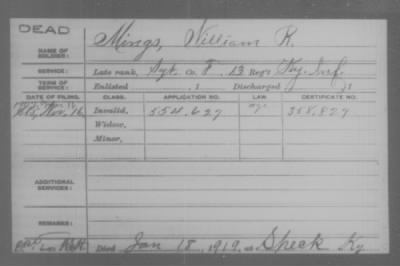 DEAD
NAME OF SOLDIER: Mings, William R.
SERVICE: Late rank, Sgt. Co. F. 13 Reg't Ky. Inf.
TERM OF SERVICE: Enlisted , 1 Discharged , 1
DATE OF FILING. CLASS. APPLICATION NO. LAW. CERTIFICATE NO.
Nov. 16 Invalid, 554.627 358.827
Widow,
Minor,
ADDITIONAL SERVICES:
REMARKS:
Died Jan 18, 1919, at Speck Ky